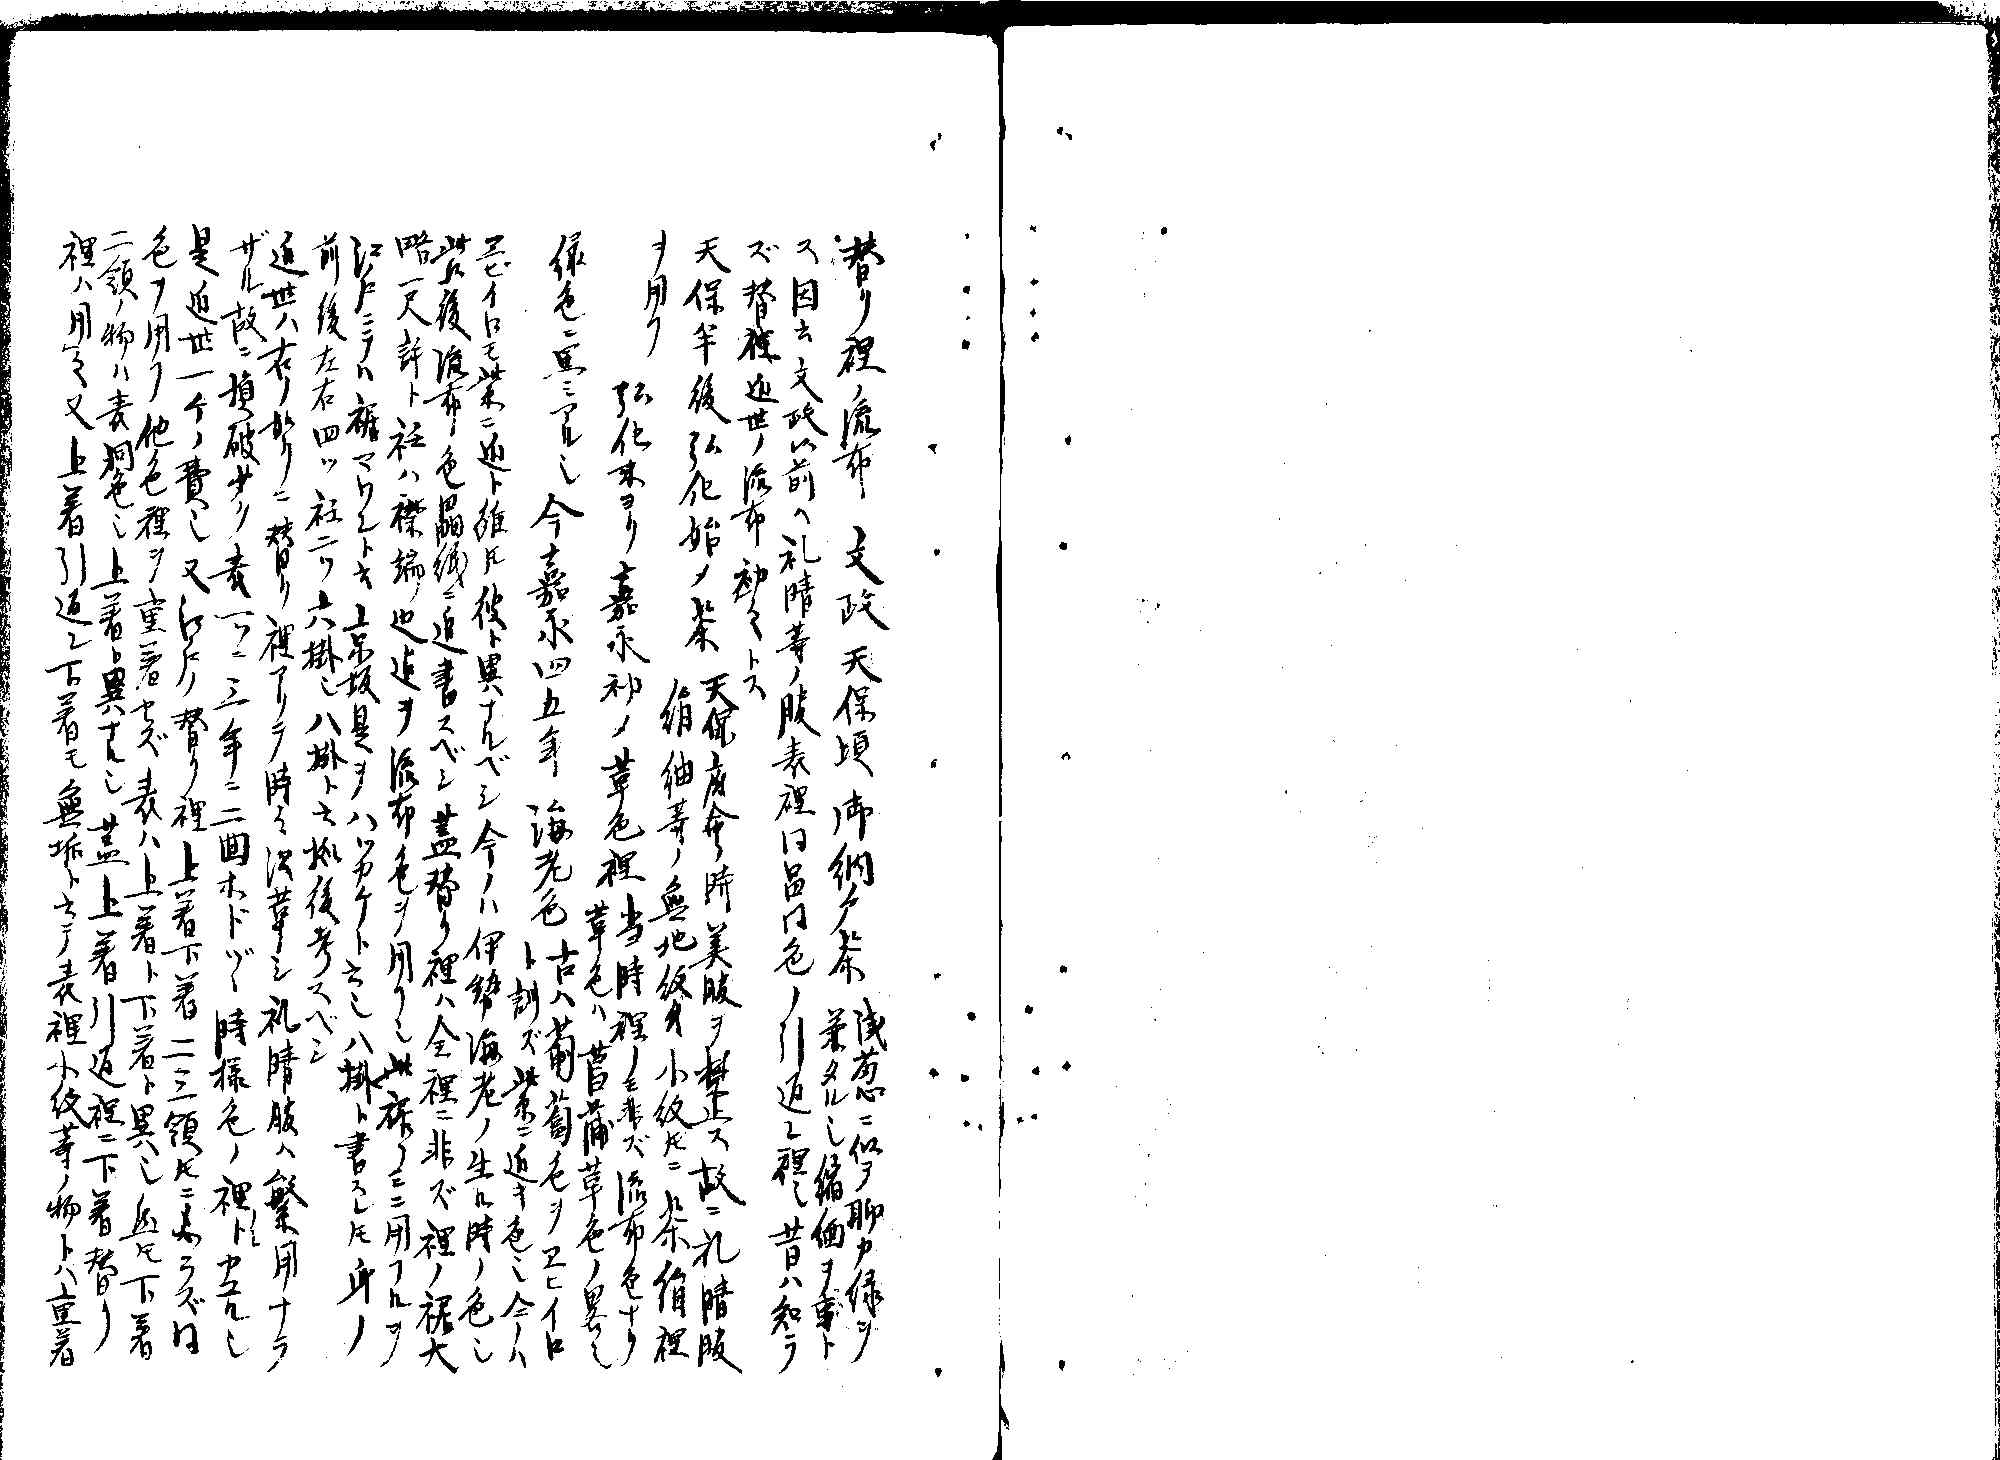 替り裡ノ流布 文政天保頃御納戸茶 浅葱ニ似テ聊カ緑ヲ
兼タルし縮緬ヲ專ト
ス因云文政以前ヘ礼晴等ノ服表裡同品同色ノ引返し裡し昔ハ知ラ
ズ替裡近世ノ流布初メトス
天保半後弘化始メ茶 天保府命時美服ヲ禁止ス故ニ礼晴服
絹紬等ノ無地紋付小紋ドモニ茶絹裡
ヲ用フ
弘化末ヨリ嘉永初メ草色裡 当時裡ノミ非ズ流布色ナリ
草色ハ菖蒲草色ノ畧し
緑色ニ黒ミアルし 今嘉永四五年 海老色 古ハ葡萄色ヲヱヒイロ
ト訓ズ紫ニ近キ色し今ノハ
ヱビイロモ紫ニ近ト雖ドモ彼ト異ナルベシ今ノハ伊勢海老ノ生ル時ノ色し
此後流布ノ色 追書スベシ 蓋替り裡ハ全裡ニ非ズ裡ノ裾大
略一尺許ト衽ハ襟端ノ也追ヲ流布色ヲ用フし此裾ノミニ用フルヲ
江戸ニテハ裾マワシト云京坂是ヲハツカケト云し八掛ト書クし ドモ身ノ
前後左右四ツ衽二ツ六掛し八掛ト云拠後考スベシ
近世ハ右ノ如リニ替り裡アリテ時々沿革シ礼晴服ハ繁用ナラ
ザル故ニ損破少ク表一ツニ三年ニ二回ホドヅヽ時様色ノ裡トカユルし
是近世一ケノ費し又江戸ノ替り裡上着下着二三領ドモニ 同
色ヲ用フ他色裡ヲ重着セズ表ハ上着ト下着ト異し 下着
二領ノ物ハ表同色し上着ト異ナルし蓋上着引返裡ニ下着替り
裡ハ用ズ又上着引返し下着モ無垢ト云テ表裡小紋等ノ物トハ重着